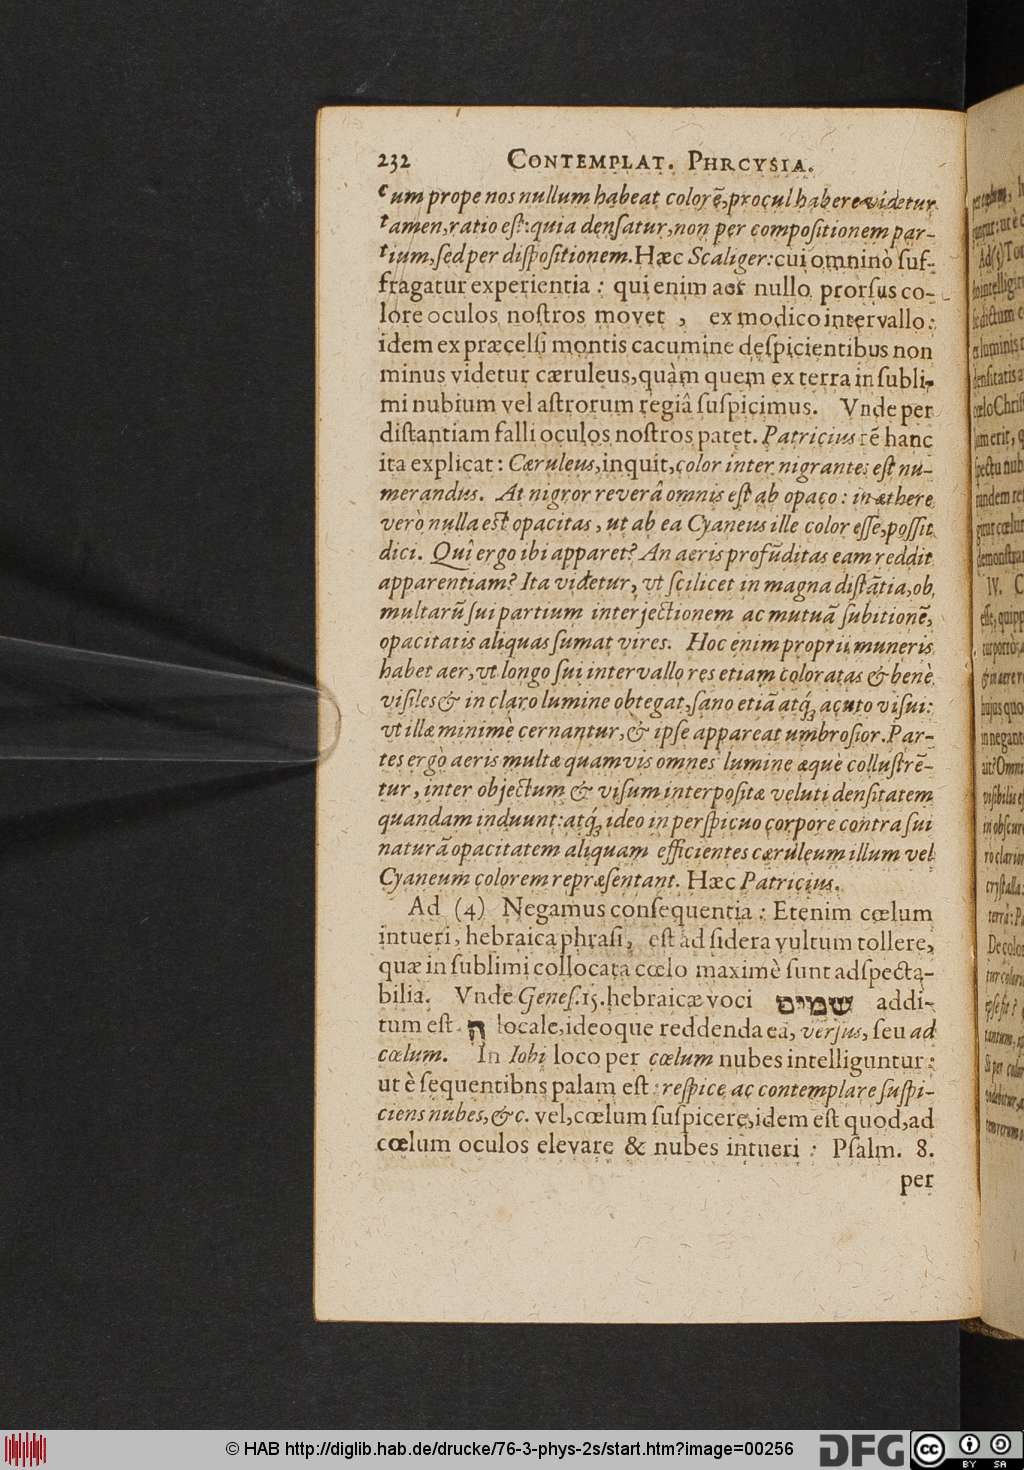 232 CONTEMPLAT. PHRCYSIA.
cum prope nos nullum habeat colorẽ, procul habere videtur
tamen, ratio est: quia densatur, non per compositionem par-
tium, sed per dispositionem. Hæc Scaliger: cui omninò suf-
fragatur experientia: qui enim aer nullo prorsus co-
lore oculos nostros movet, ex modico intervallo:
idem ex præcelsi montis cacumine despicientibus non
minus videtur cæruleus, quàm quem ex terra in subli-
mi nubium vel astrorum regiâ suspicimus. Vnde per
distantiam falli oculos nostros patet. Patricius rẽ hanc
ita explicat: Cæruleus, inquit, color inter nigrantes est nu-
merandus. At nigror reverâ omnis est ab opaco: in æthere
verò nulla est opacitas, ut ab ea Cyaneus ille color esse, possit
dici. Quî ergo ibi apparet? An aeris profũditas eam reddit
apparentiam? Ita videtur, vt scilicet in magna distãtia, ob
multarũ sui partium interjectionem ac mutuã subitionẽ,
opacitatis aliquas sumat vires. Hoc enim proprii muneris
habet aer, vt longo sui intervallo res etiam coloratas & benè
visiles & in claro lumine obtegat, sano etiã atq́; acuto visui:
vt illæ minimè cernantur, & ipse appareat umbrosior. Par-
tes ergò aeris multæ quamvis omnes lumine æquè collustrẽ-
tur, inter objectum & visum interpositæ veluti densitatem
quandam induunt: atq́; ideo in perspicuo corpore contra sui
naturã opacitatem aliquam efficientes cæruleum illum vel
Cyaneum colorem repræsentant. Hæc Patricius.
Ad (4) Negamus consequentia: Etenim cœlum
intueri, hebraica phrasi, est ad sidera vultum tollere,
quæ in sublimi collocata cœlo maximè sunt adspecta-
bilia. Vnde Genes. 15. hebraicæ voci שמים addi-
tum est ה locale, ideoque reddenda ea, versus, seu ad
cœlum. In Iobi loco per cœlum nubes intelliguntur:
ut è sequentibns palam est: respice ac contemplare suspi-
ciens nubes, &c. vel, cœlum suspicere, idem est quod, ad
cœlum oculos elevare & nubes intueri: Psalm. 8.
per
© HAB http://diglib.hab.de/drucke/76-3-phys-2s/start.htm?image=00256
DFG
cc BY SA